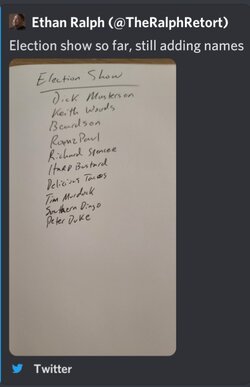 Ethan Ralph (@TheRalphRetort)
Election show so far, still adding names
Election Show
Dick Masterson
Keith Woods
Beardson
RamzPaul
Richard Spencer
Hard Bastard
Delicious Tacos
Tim Murdock
Southern Dingo
Peter Duke
Twitter